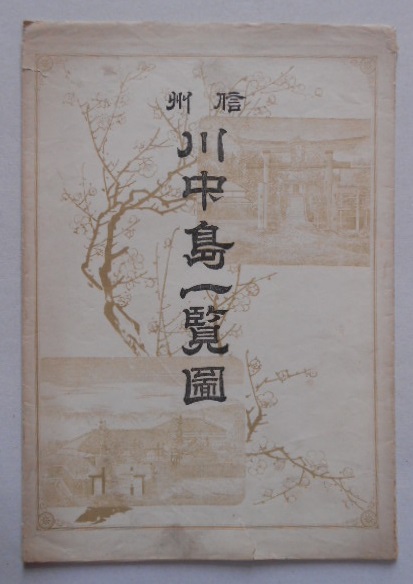 信州
川中島一覧圖